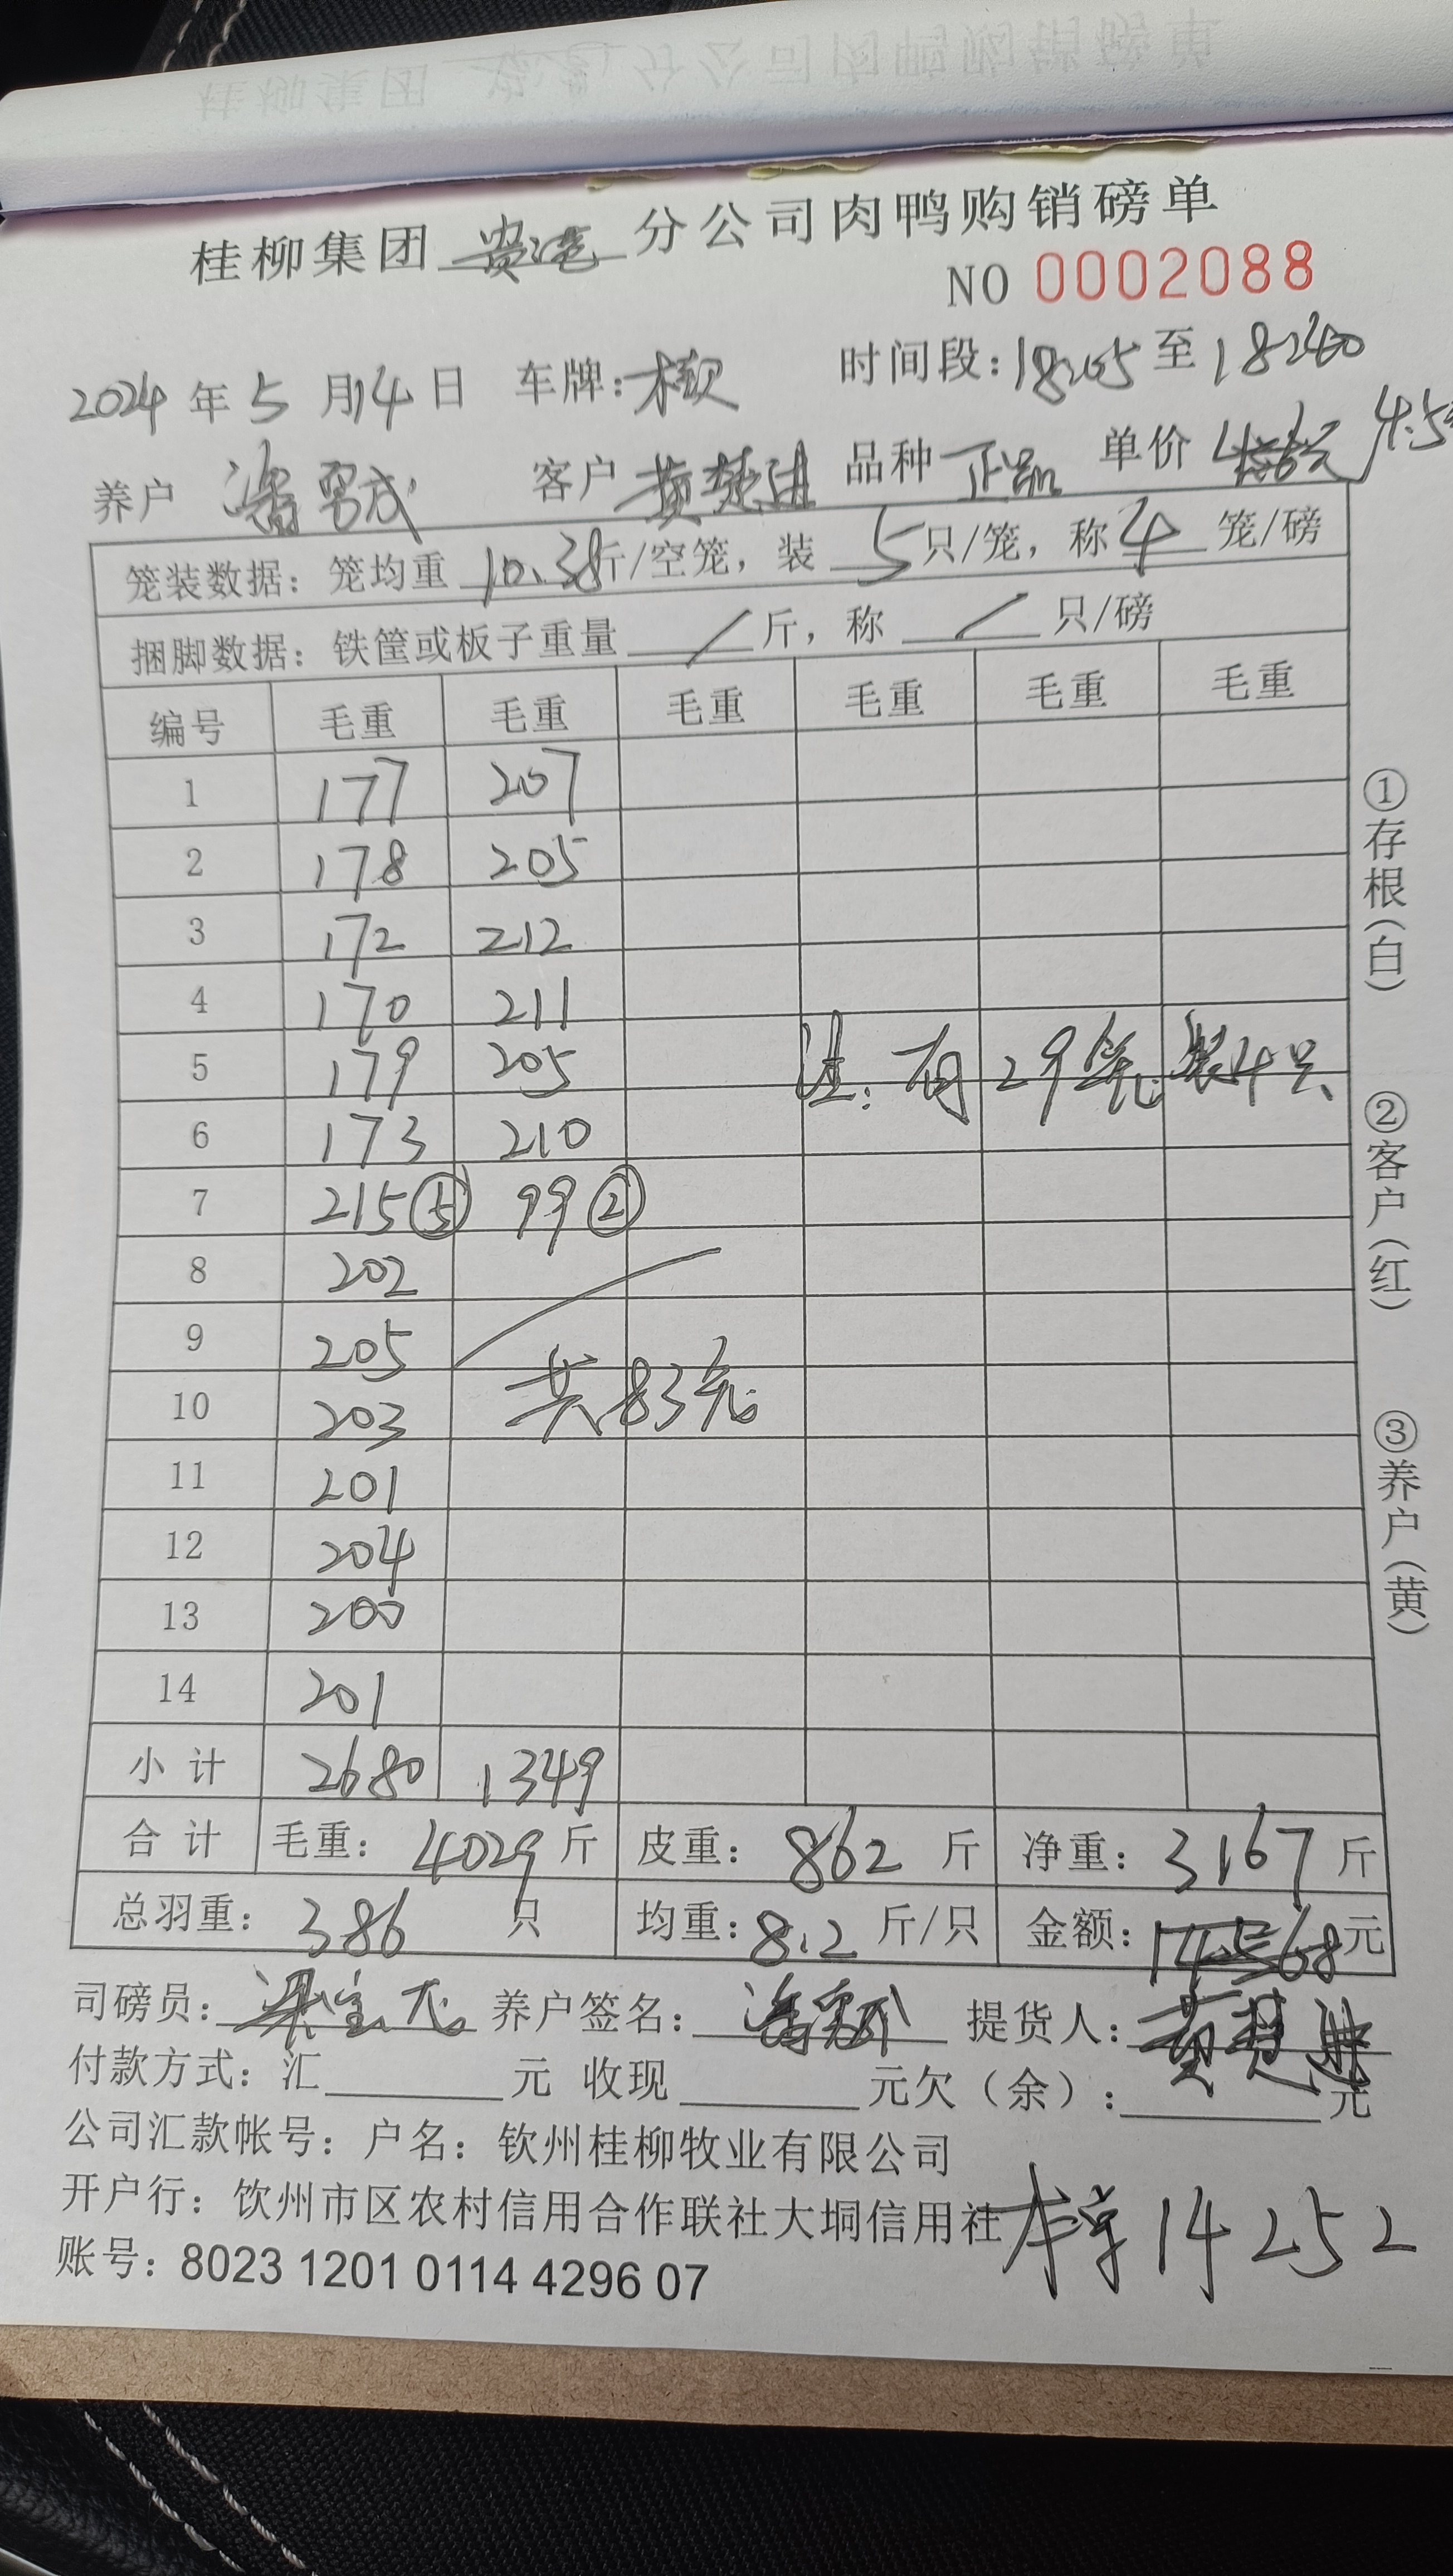 桂柳集团 贵港 分公司肉鸭购销磅单
NO 0002088
2024 年 5 月 14 日 车牌: 时间段: 至
养户 潘 客户 黄楚进 品种 正品 单价 4.5
笼装数据: 笼均重 10.38 斤/空笼, 装 5 只/笼, 称 4 笼/磅
捆脚数据: 铁筐或板子重量 / 斤, 称 / 只/磅
编号 毛重 毛重 毛重 毛重 毛重 毛重
1 177 207
2 178 205
3 172 212
4 170 211
5 179 205 注: 有29笼装4只
6 173 210
7 215⑤ 99②
8 202
9 205
10 203 共83笼
11 201
12 204
13 200
14 201
小 计 2680 1349
合 计 毛重: 4029 斤 皮重: 862 斤 净重: 3167 斤
总羽重: 386 只 均重: 8.2 斤/只 金额: 14568 元
司磅员: 梁宝飞 养户签名: 潘 提货人: 黄楚进
付款方式: 汇 元 收现 元欠(余): 元
公司汇款帐号: 户名: 钦州桂柳牧业有限公司
开户行: 饮州市区农村信用合作联社大垌信用社
本单14252
账号: 8023 1201 0114 4296 07
①存根(白)
②客户(红)
③养户(黄)